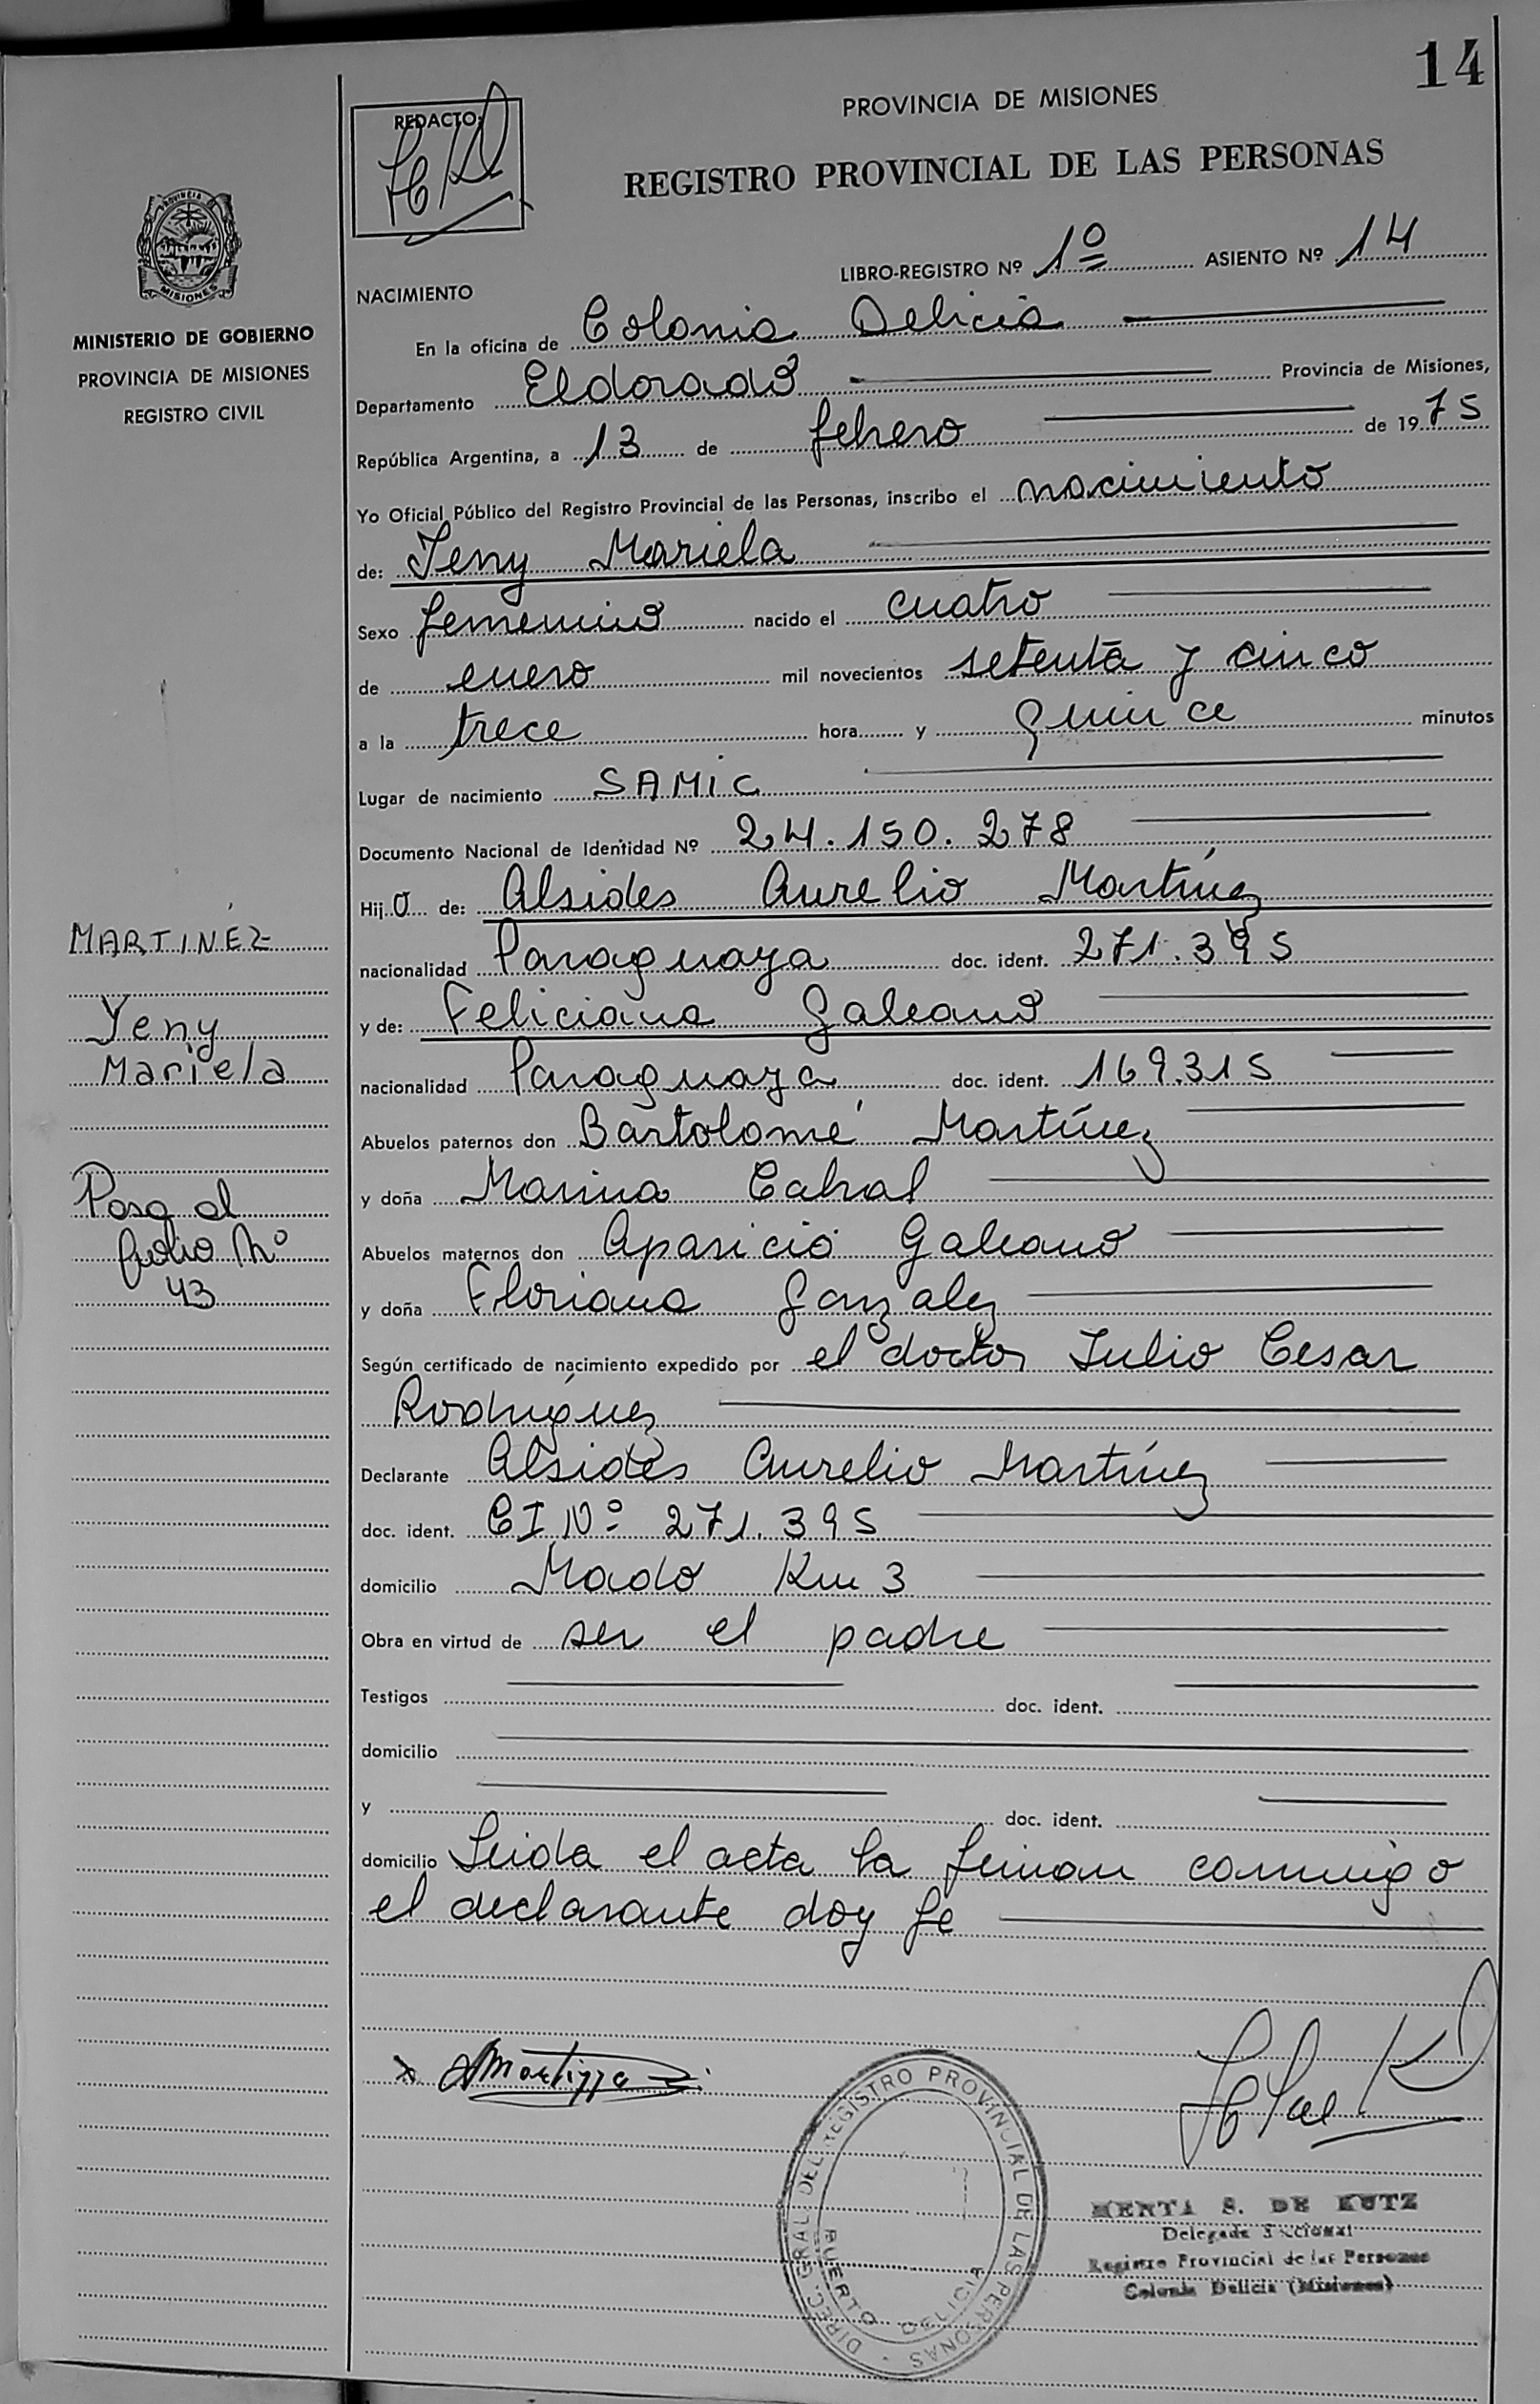 14
PROVINCIA DE MISIONES
REDACTO:
REGISTRO PROVINCIAL DE LAS PERSONAS
LIBRO-REGISTRO Nº 1º ASIENTO Nº 14
PROVINCIA
MISIONES
MINISTERIO DE GOBIERNO
PROVINCIA DE MISIONES
REGISTRO CIVIL
NACIMIENTO
En la oficina de Colonia Delicia
Departamento Eldorado Provincia de Misiones,
República Argentina, a 13 de febrero de 1975
Yo Oficial Público del Registro Provincial de las Personas, inscribo el nacimiento
de: Yeny Mariela
Sexo femenino nacido el cuatro
de enero mil novecientos setenta y cinco
a la trece hora y quince minutos
Lugar de nacimiento SAMIC
Documento Nacional de Identidad Nº 24.150.278
Hij a de: Alsides Aurelio Martínez
nacionalidad Paraguaya doc. ident. 271.395
y de: Feliciana Galeano
nacionalidad Paraguaya doc. ident. 169.315
Abuelos paternos don Bartolomé Martínez
y doña Marina Cabral
Abuelos maternos don Aparicio Galeano
y doña Floriana Gonzalez
Según certificado de nacimiento expedido por el doctor Julio Cesar
Rodríguez
Declarante Alsides Aurelio Martínez
doc. ident. CI Nº 271.395
domicilio Mado Km 3
Obra en virtud de ser el padre
Testigos doc. ident.
domicilio
y doc. ident.
domicilio Leida el acta la firman conmigo
el declarante doy fe
MARTINÉZ
Yeny
Mariela
Pasa al
folio Nº
43
DIREC. GRAL. DEL REGISTRO PROVINCIAL DE LAS PERSONAS
PUERTO DELICIA
S. DE KUTZ
Delegada
Registro Provincial de las Personas
Colonia Delicia (Misiones)